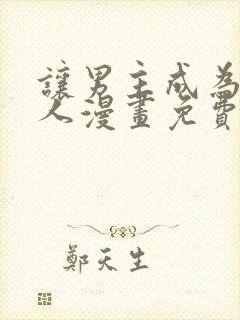 讓男主成為
人漫畫免費
鄭天生